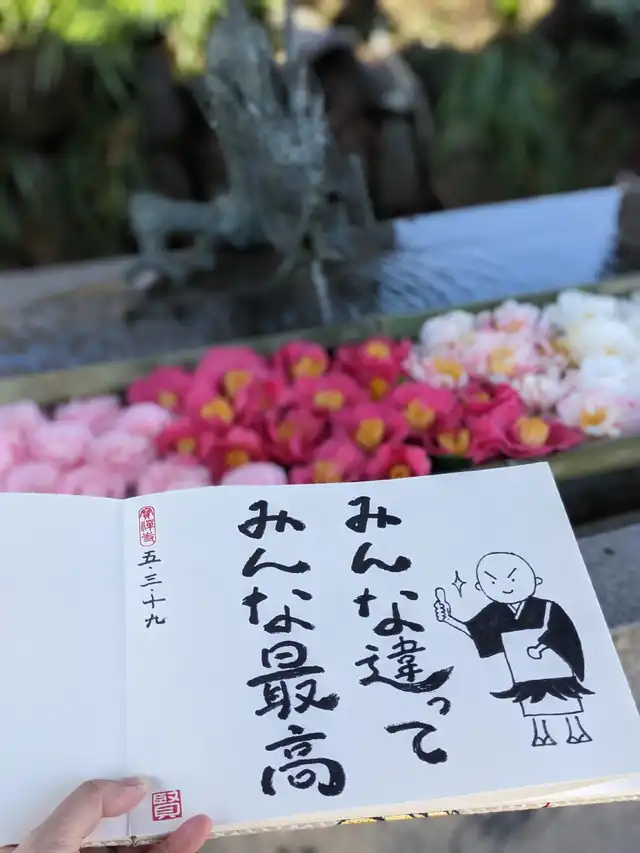 みんな違って
みんな最高
五・三・十九
賢